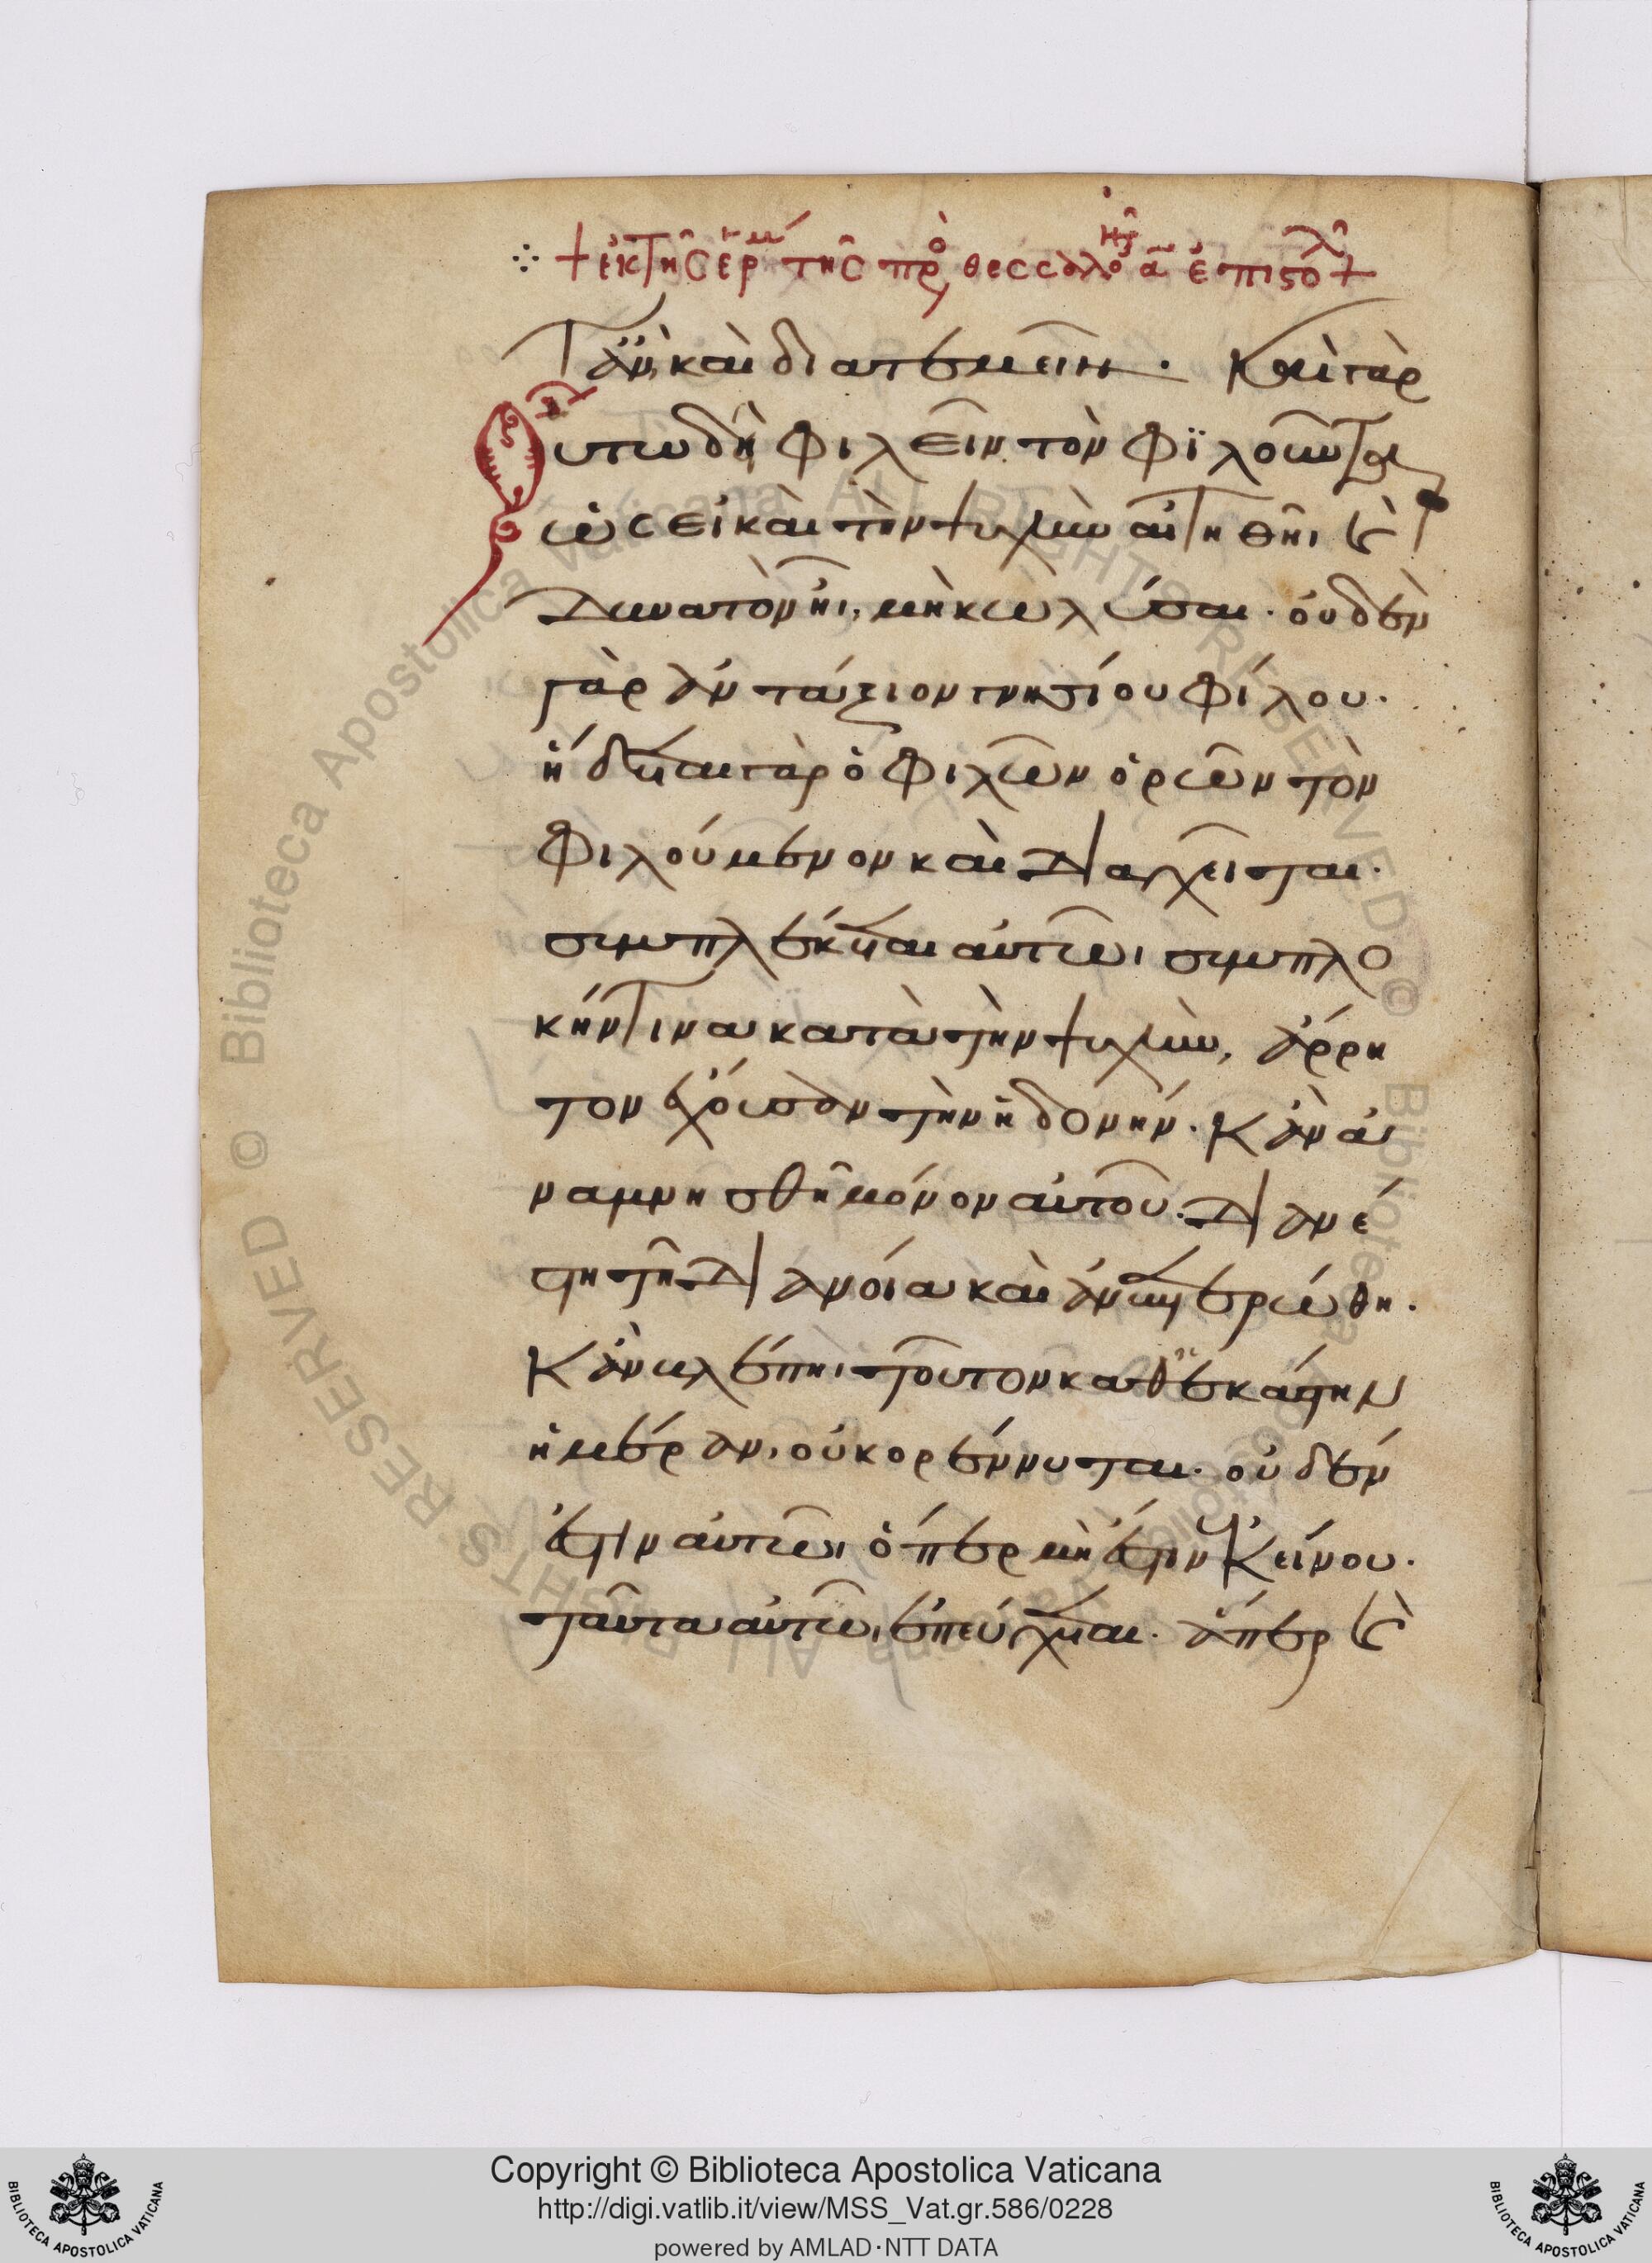 + ἐκ τῆς ἑρμ τῆς πρ θεσσαλο α ἐπιστολ +
αν και διαπ
Οὕτω δὴ φιλεῖν τὸν φιλοῦντα
ὡς εἰ καὶ τὴν ψυχὴν αἰτηθῆι καὶ
δυνατὸν ἦι, μὴ κωλύσαι. οὐδὲν
γὰρ ἀντάξιον γνησίου φίλου.
ἥδεται γὰρ ὁ φιλῶν ὁρῶν τὸν
φιλούμενον καὶ διαχεῖται.
συμπλέκεται αὐτῶι συμπλο
κήν τινα κατὰ τὴν ψυχὴν, ἄρρη
τον ἔχουσαν τὴν ἡδονήν. κἂν ἀ
ναμνησθῆ μόνον αὐτοῦ. διανέ
στη τῆ διανοία καὶ ἀνεπτερώθη.
κἂν βλέπηι τοῦτον καθ᾽ ἑκάστην
ἡμέραν, οὐ κορέννυται. οὐδέν
ἐστιν αὐτῶι, ὅπερ μὴ ἔστιν ἐκείνου.
ταῦτα αὐτῶι ἐπεύχεται. ἅπερ καὶ
Copyright © Biblioteca Apostolica Vaticana
http://digi.vatlib.it/view/MSS_Vat.gr.586/0228
powered by AMLAD·NTT DATA
BIBLIOTECA APOSTOLICA VATICANA
BIBLIOTECA APOSTOLICA VATICANA